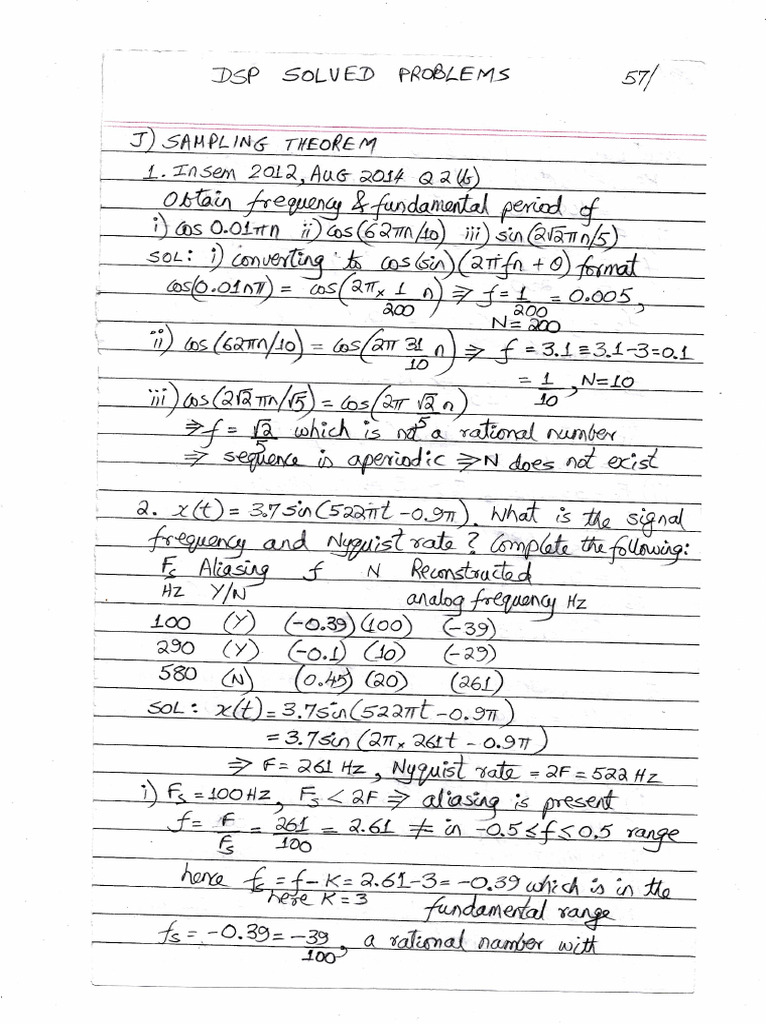 DSP SOLVED PROBLEMS 57/
J) SAMPLING THEOREM
1. Insem 2012, AUG 2014 Q 2(b)
Obtain frequency & fundamental period of
i) cos 0.01πn ii) cos(62πn/10) iii) sin(2√2πn/5)
SOL: i) converting to cos(sin)(2πfn + θ) format
cos(0.01nπ) = cos(2π × 1/200 n) ⇒ f = 1/200 = 0.005,
N = 200
ii) cos(62πn/10) = cos(2π 31/10 n) ⇒ f = 3.1 ≡ 3.1-3 = 0.1
= 1/10, N=10
iii) cos(2√2πn/√5) = cos(2π √2/5 n)
⇒ f = √2/5 which is not a rational number
⇒ sequence is aperiodic ⇒ N does not exist
2. x(t) = 3.7 sin(522πt - 0.9π). What is the signal
frequency and Nyquist rate? Complete the following:
Fs Aliasing f N Reconstructed
HZ Y/N analog frequency HZ
100 (Y) (-0.39) (100) (-39)
290 (Y) (-0.1) (10) (-29)
580 (N) (0.45) (20) (261)
SOL: x(t) = 3.7 sin(522πt - 0.9π)
= 3.7 sin(2π × 261t - 0.9π)
⇒ F = 261 HZ, Nyquist rate = 2F = 522 HZ
i) Fs = 100HZ, Fs < 2F ⇒ aliasing is present
f = F/Fs = 261/100 = 2.61 ≠ in -0.5 ≤ f ≤ 0.5 range
hence fs = f - K = 2.61 - 3 = -0.39 which is in the
here K = 3 fundamental range
fs = -0.39 = -39/100, a rational number with